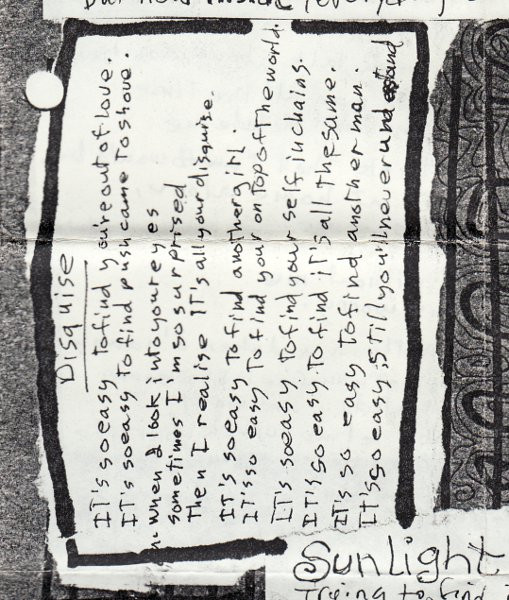 Disguise
IT'S so easy To find you're out of love.
IT's so easy to find push came To shove.
when I look into your eyes
sometimes I'm so surprised
Then I realise IT's all your disguise.
IT'S so easy To find another girl.
IT's so easy To find your on Top of The world.
IT's so easy To find your self in chains.
IT's so easy To find iT's all The same.
IT's so easy To find another man.
IT's so easy, STill you'll never understand
Sunlight
Trying to find